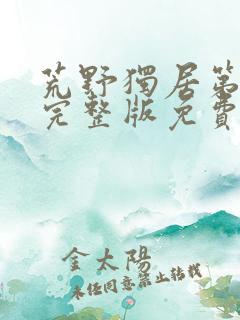 荒野獨居第
完整版免費
金太陽
未經同意禁止轉載